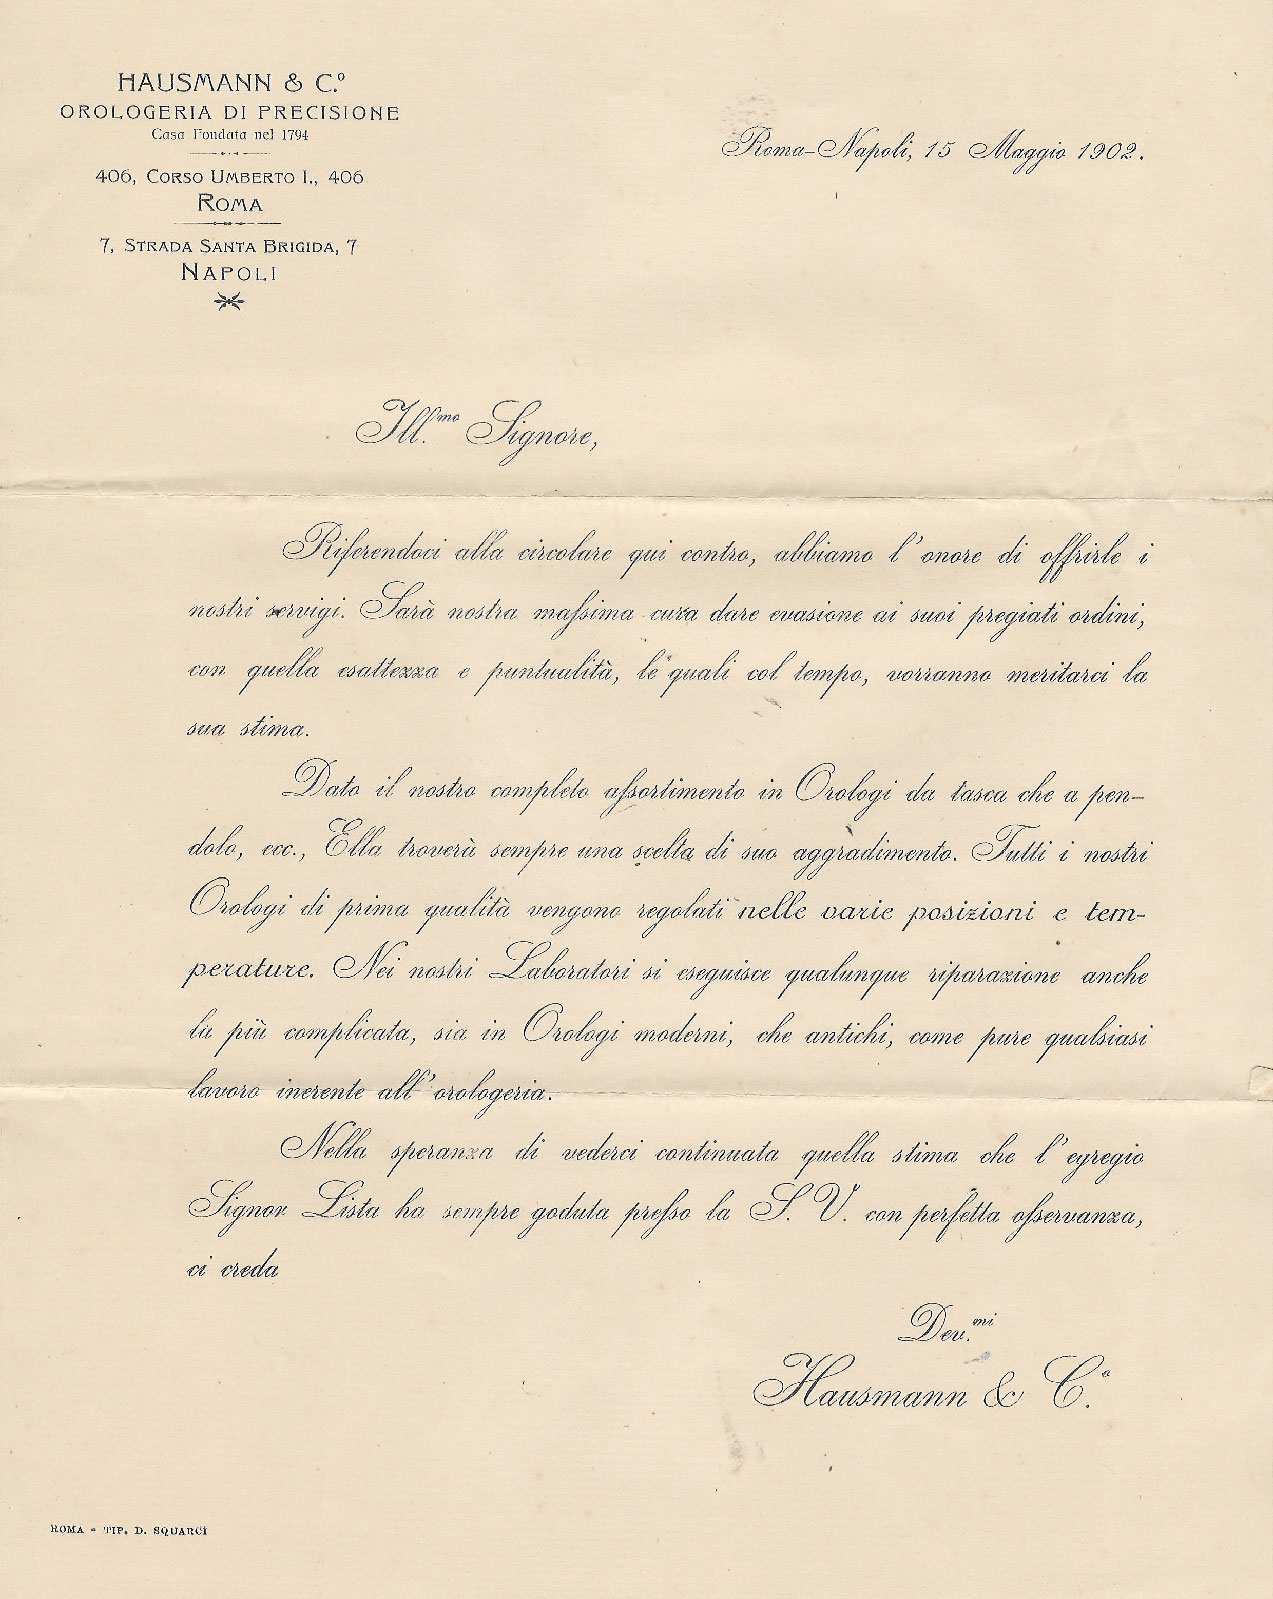 HAUSMANN & C.º
OROLOGERIA DI PRECISIONE
Casa Fondata nel 1794
406, CORSO UMBERTO I., 406
ROMA
7, STRADA SANTA BRIGIDA, 7
NAPOLI
Roma-Napoli, 15 Maggio 1902.
Ill.mo Signore,
Riferendoci alla circolare qui contro, abbiamo l'onore di offrirle i
nostri servigi. Sarà nostra massima cura dare evasione ai suoi pregiati ordini,
con quella esattezza e puntualità, le quali col tempo, vorranno meritarci la
sua stima.
Dato il nostro completo assortimento in Orologi da tasca che a pen-
dolo, ecc., Ella troverà sempre una scelta di suo aggradimento. Tutti i nostri
Orologi di prima qualità vengono regolati nelle varie posizioni e tem-
perature. Nei nostri Laboratori si eseguisce qualunque riparazione anche
la più complicata, sia in Orologi moderni, che antichi, come pure qualsiasi
lavoro inerente all'orologeria.
Nella speranza di vederci continuata quella stima che l'egregio
Signor Lista ha sempre goduta presso la S. V. con perfetta osservanza,
ci creda
Dev.mi
Hausmann & C.º
ROMA - TIP. D. SQUARCI